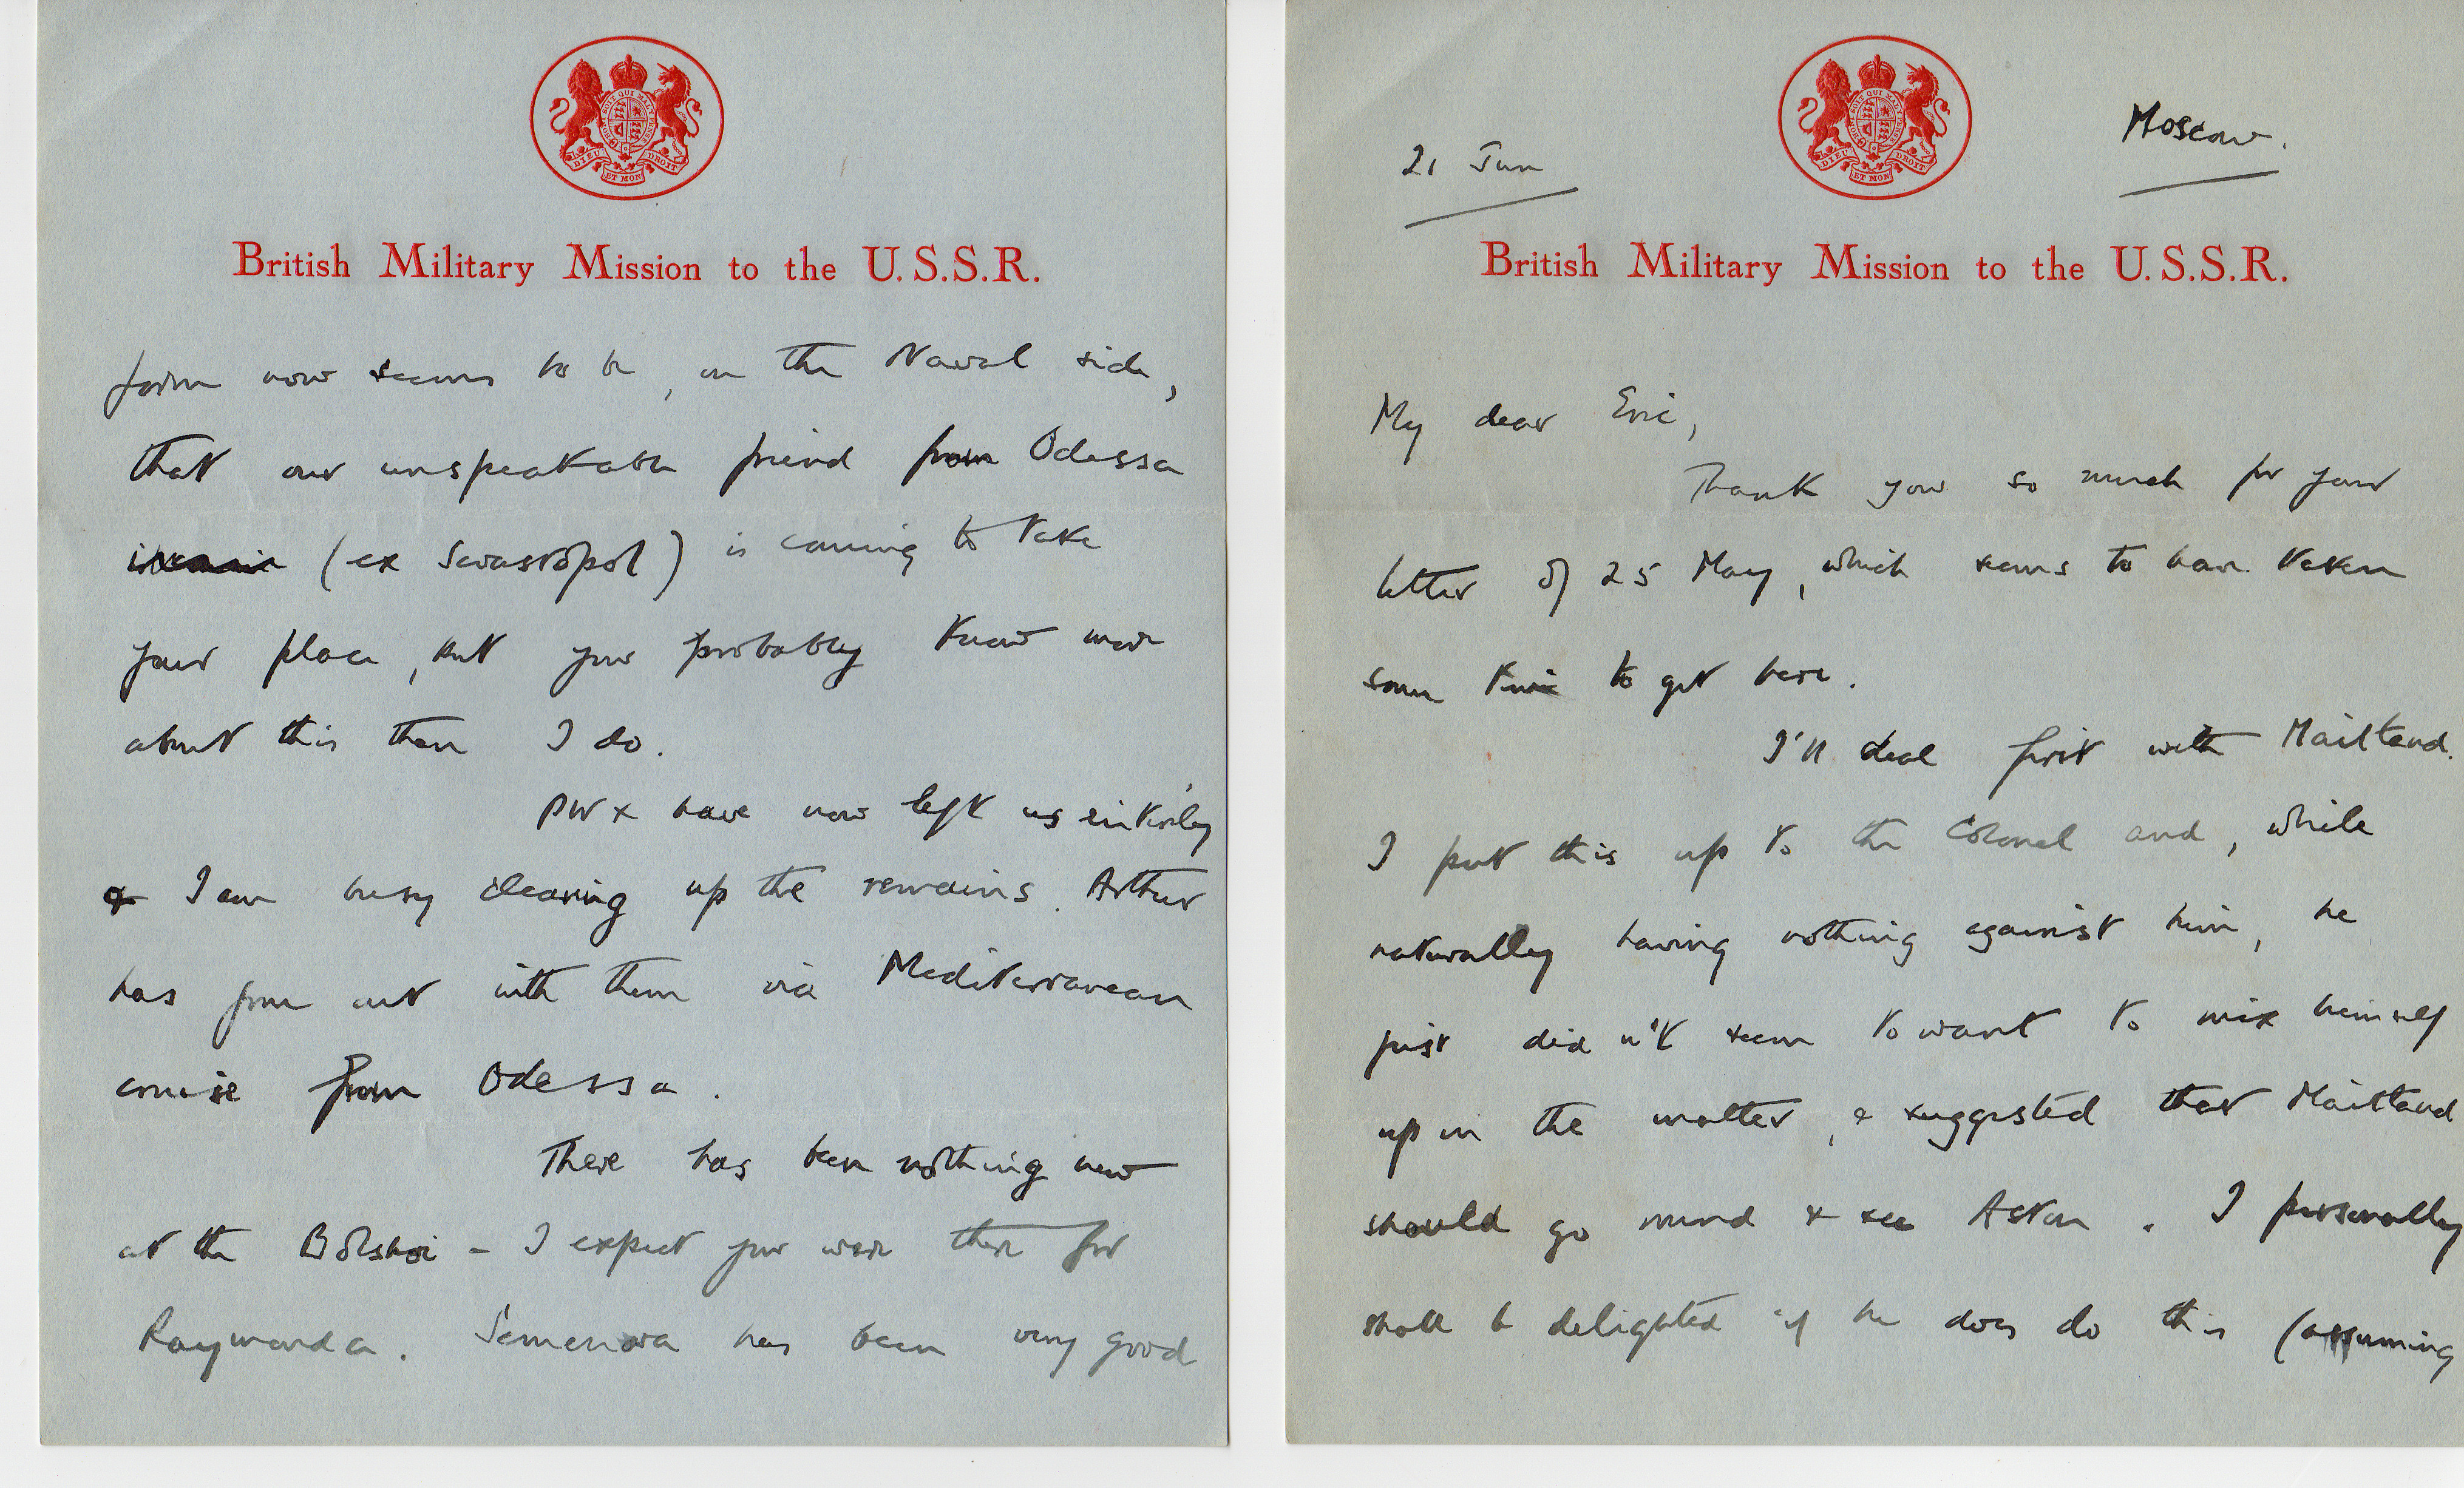 HONI SOIT QUI MAL Y PENSE
DIEU ET MON DROIT
British Military Mission to the U.S.S.R.
form now seems to be, on the Naval side,
that our unspeakable friend from Odessa
(ex Sevastopol) is coming to take
your place, but you probably know more
about this than I do.
PWX have now left us entirely
& I am busy clearing up the remains. Arthur
has gone out with them via Mediterranean
cruise from Odessa.
There has been nothing new
at the Bolshoi – I expect you were there for
Raymonda. Semenova has been very good
21 Jun
HONI SOIT QUI MAL Y PENSE
DIEU ET MON DROIT
Moscow.
British Military Mission to the U.S.S.R.
My dear Eric,
Thank you so much for your
letter of 25 May, which seems to have taken
some time to get here.
I'll deal first with Maitland.
I put this up to the Colonel and, while
naturally having nothing against him, he
just didn't seem to want to mix himself
up in the matter, & suggested that Maitland
should go round & see Aston. I personally
shall be delighted if he does do this (assuming